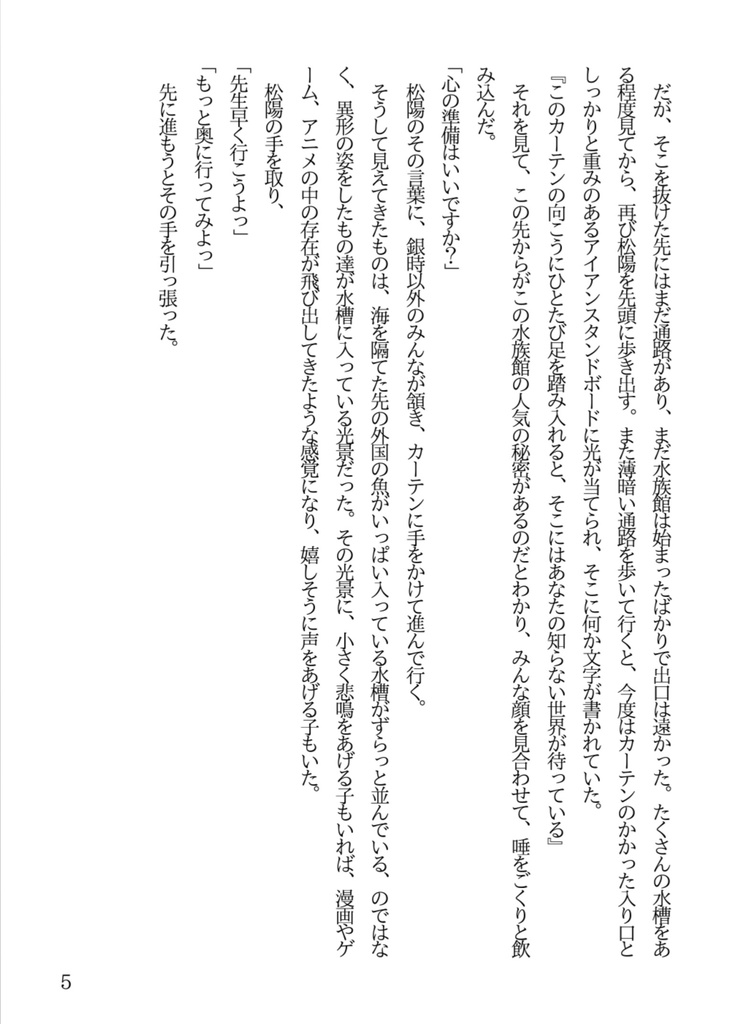 だが、そこを抜けた先にはまだ通路があり、まだ水族館は始まったばかりで出口は遠かった。たくさんの水槽をあ
る程度見てから、再び松陽を先頭に歩き出す。また薄暗い通路を歩いて行くと、今度はカーテンのかかった入り口と
しっかりと重みのあるアイアンスタンドボードに光が当てられ、そこに何か文字が書かれていた。
『このカーテンの向こうにひとたび足を踏み入れると、そこにはあなたの知らない世界が待っている』
それを見て、この先からがこの水族館の人気の秘密があるのだとわかり、みんな顔を見合わせて、唾をごくりと飲
み込んだ。
「心の準備はいいですか？」
松陽のその言葉に、銀時以外のみんなが頷き、カーテンに手をかけて進んで行く。
そうして見えてきたものは、海を隔てた先の外国の魚がいっぱい入っている水槽がずらっと並んでいる、のではな
く、異形の姿をしたもの達が水槽に入っている光景だった。その光景に、小さく悲鳴をあげる子もいれば、漫画やゲ
ーム、アニメの中の存在が飛び出してきたような感覚になり、嬉しそうに声をあげる子もいた。
松陽の手を取り、
「先生早く行こうよっ」
「もっと奥に行ってみよっ」
先に進もうとその手を引っ張った。
5